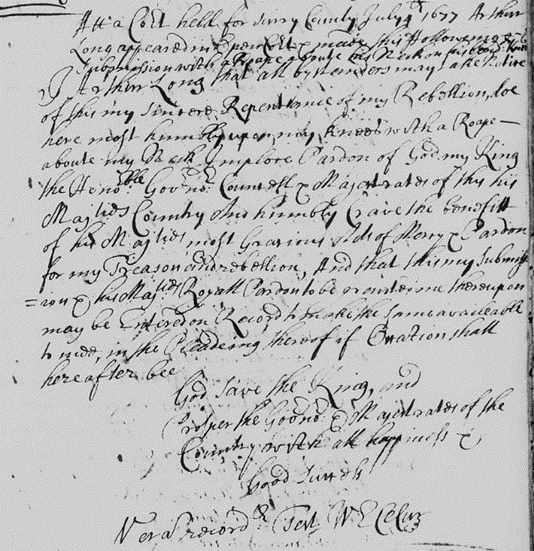 Att a Co:rt held for Surry County July 4th 1677 Arthur
Long appeared in open Co:rt & made this following
Submission with a Roape aboute his Neck on his bended knees
I Arthur Long that all by standers may take Notice
of this my Sincere Repentance of my Rebellion, doe
here most humbly upon my knees with a Roape -
aboute my Neck Implore Pardon of God, my King
the Hono:ble Govern:r Councell & Majestrates of this his
Maj:ties Country And humbly Crave the benefitt
of his Maj:ties most Gracious Acts of Mercy & Pardon
for my Treason and rebellion, And that this my Submiss
=ion & his Maj:ties Royall Pardon to be grounded thereupon
may be Entered on Record to make the same availeable
to mee, in the Pleadeing thereof if Occation shall
hereafter bee
God Save the King, and
Prosper the Govern:r & Majestrates of the
Country with all happiness &
Good Success
Vera record:r Test W E Cl Cur